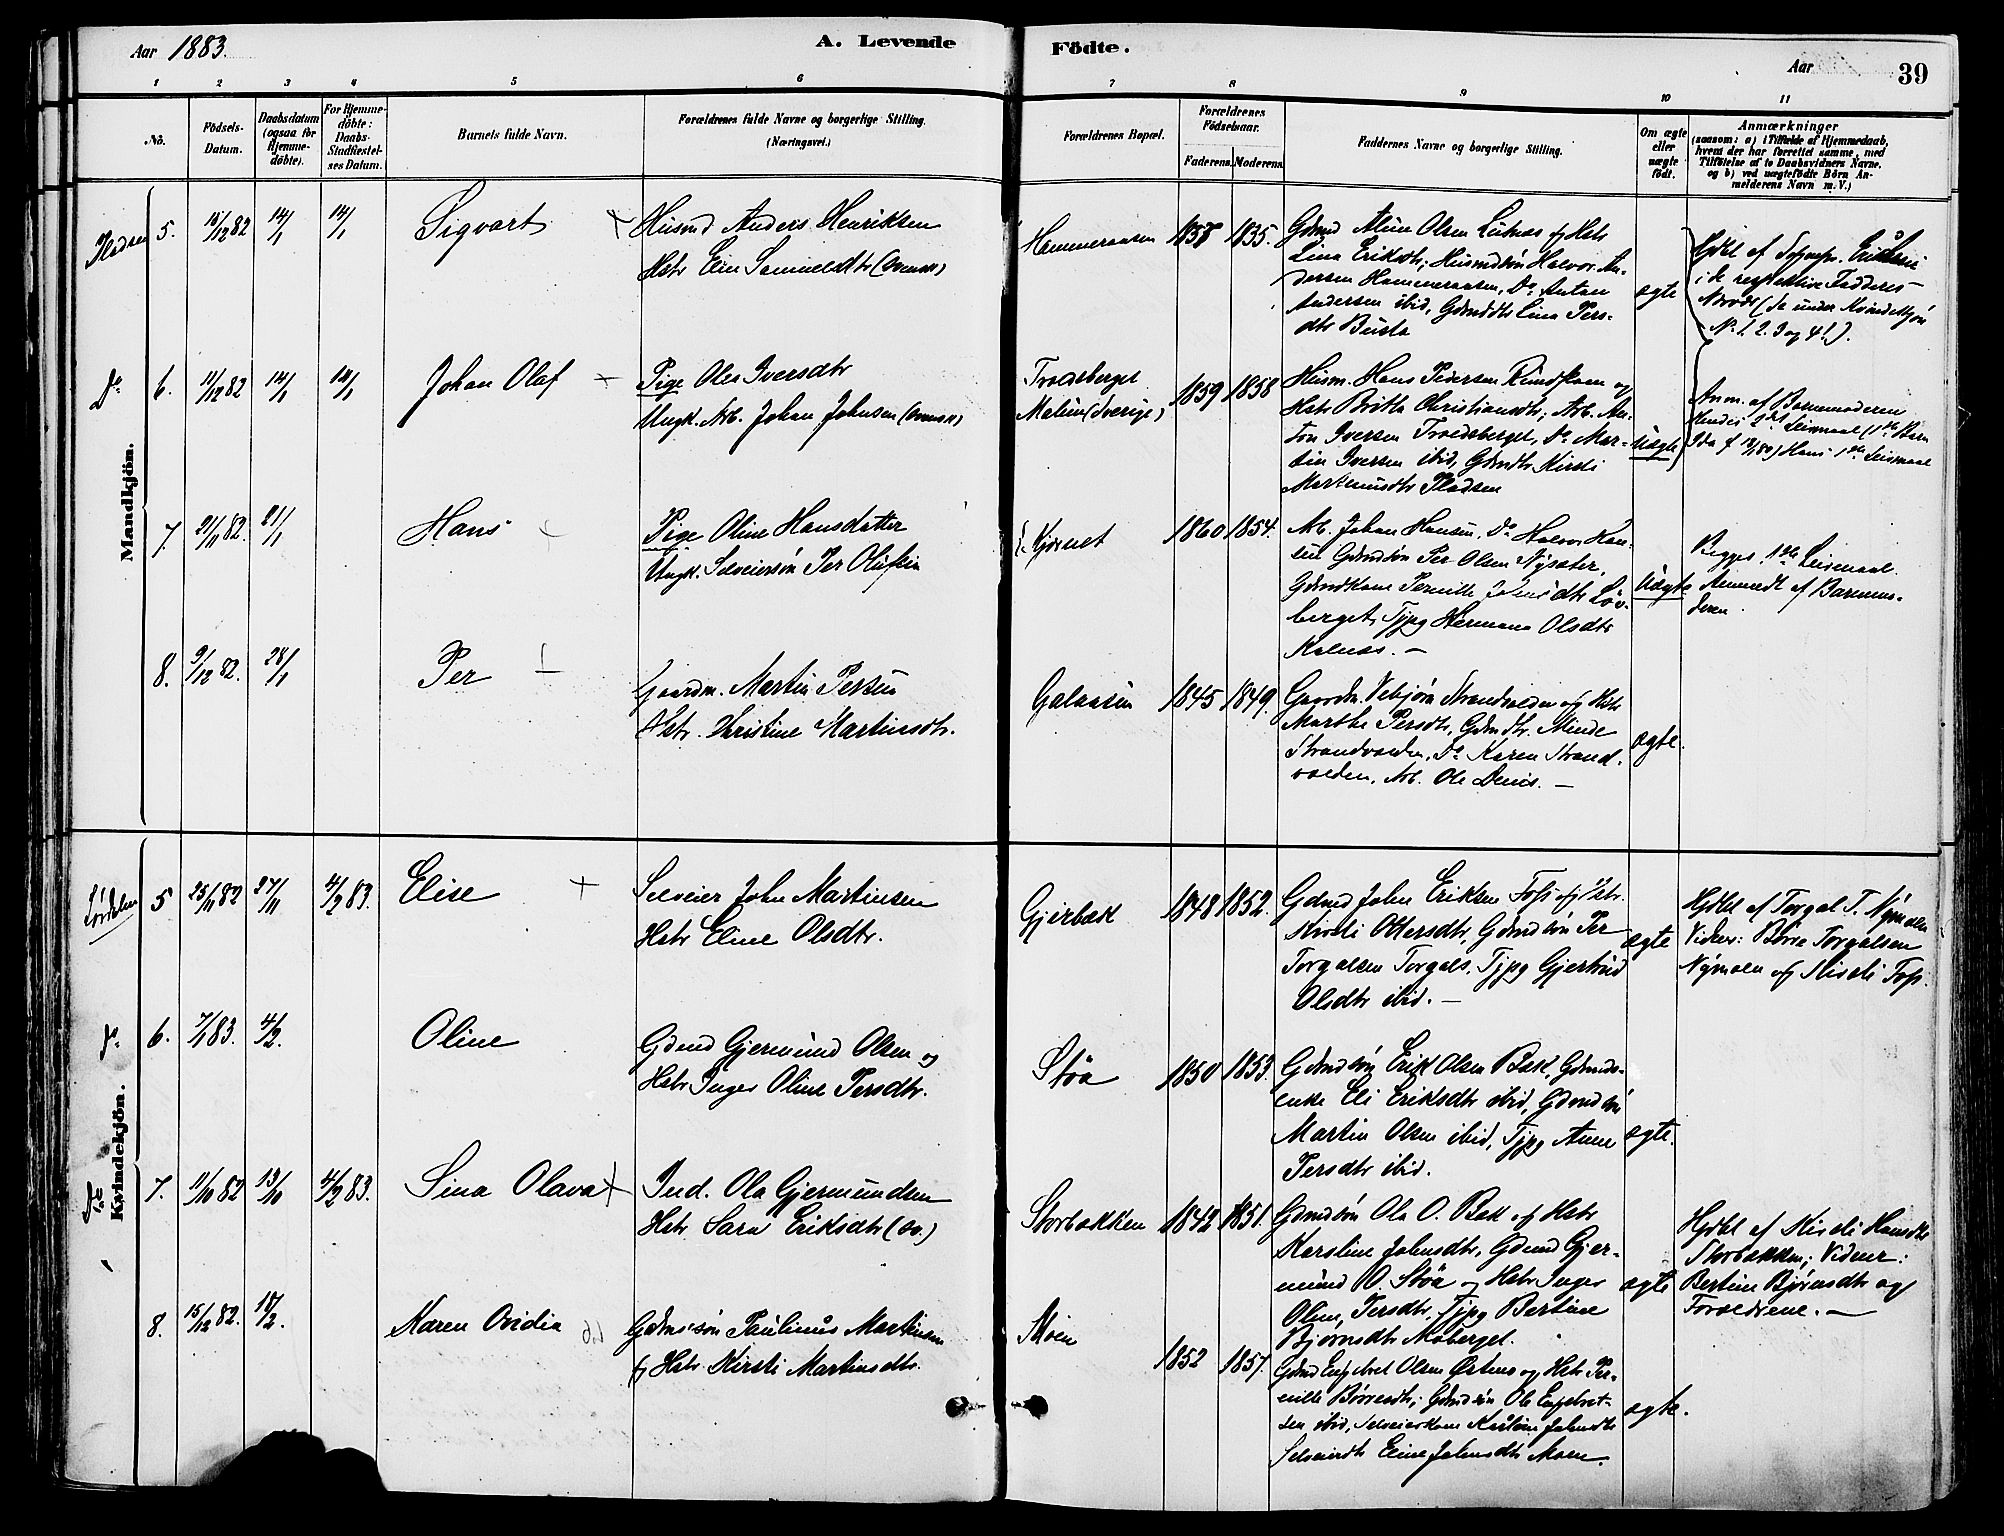 Aar 1883.
A. Levende
Födte.
Aar
39
1 2 3 4 5 6 7 8 9 10 11
No.
Födsels-
Datum.
Daabsdatum
(ogsaa for
Hjemme-
döbte).
For Hjemme-
döbte:
Daabs-
Stadfæstel-
ses Datum.
Barnets fulde Navn.
Forældrenes fulde Navne og borgerlige Stilling.
(Næringsvei.)
Forældrenes Bopæl.
Forældrenes
Födselsaar.
Faderens. Moderens.
Faddernes Navne og borgerlige Stilling.
Om ægte
eller
uægte
födt.
Anmærkninger
(saasom: a) i Tilfælde af Hjemmedaab,
hvem der har forrettet samme, med
Tilföielse af to Daabsvidners Navne,
og b) ved uægtefödte Börn An-
melderens Navn m. V.)
Mandkjön.
5. 18/12 82 14/1 14/1 Sigvart
Husmd Anders Henriksen
Hstr Elin Samuelsdtr (svensk)
Hammeraasen 1835.
Gdmd Olsen og Hstr
Lina Eriksdtr; Husmdsön Halvor An-
dersen Hammeraasen, Do Anton
Andersen ibid, Gdmddtr Lina Pers-
dtr Busta
ægte
i de respektive Fadderes
(se under Kvindekjön
No 1. 2. 3 og 4!).
Do 6. 11/12 82 14/1 14/1 Johan Olaf
Pige Olea Iversdtr
Ungk. Arb. Johan Johnsen (svensk)
Troedsberget
Malun (Sverige) 1859 1858
Husm. Hans Pedersen og
Hstr Britta Christiansdtr; Arb. An-
ton Iversen Troedsberget, Do Mar-
tin Iversen ibid, Gdmdtr Kirsti
Martinusdtr Pladsen
Uægte
Anm. af Barnemoderen
Hendes 2det Leiermaal (1ste Barn
Hans 1ste Leiermaal
7. 21/11 82. 21/1 Hans
Pige Oline Hansdatter
Ungk. Selveiersön Per Olufsen
Kjernet 1860 1854.
Arb. Johan Hansen, Do Halvor Han-
sen Gdmdsön Per Olsen Nysæter,
Gdmdkone Pernille Johnsdtr Löv-
berget, Tjpg Hermana Olsdtr
Kalnæs. —
Uægte
Begges 1ste Leiermaal.
Anmeldt af Barnemo-
deren.
8. 9/12 82. 28/1 Per
Gaardm. Martin Persen
Hstr. Kristine Martinsdtr.
Galaasen 1845 1849.
Gaardm. Vebjörn Strandvolden og Hstr
Marthe Persdtr, Gdmdtr. Minde
Strandvolden, Do Karen Strand-
volden, Arb. Ole —
ægte.
Kvindekjön.
Lördalen 5 25/11 82 27/11 4/2 83. Elise
Selveier John Martinsen
Hstr Eline Olsdtr.
Gjerbæk 1848 1852.
Gdmd John Eriksen Foss og Hstr.
Kirsti Ottersdtr, Gdmdsön Per
Torgalsen Torgals, Tjpg Gjertrud
Olsdtr ibid. —
ægte
Hjdbt af Torgal T. Nymoen
Vidner: Börre Torgalsen
Nymoen og Kirsti Foss.
Do 6. 7/1 83. 4/2. Oline
Gdmd Gjermund Olsen og
Hstr Inger Oline Persdtr.
Støa 1850 1853.
Gdmdsön Erik Olsen Bæk, Gdmds-
enke Eli Eriksdtr ibid, Gdmdsön
Martin Olsen ibid, Tjpg Anne
Persdtr ibid.
ægte.
7. 11/10 82 13/10 4/2 83. Sina Olava
Ind. Ola Gjermundsen
Hstr Sara Eriksdtr (sv.)
Storbækken 1842 1851.
Gdmdsön Ola O. Bæk og Hstr
Karoline Johnsdtr, Gdmd Gjer-
mund O. Støa og Hstr Inger
Oline, Persdtr, Tjpg Bertine
Björnsdtr Moberget.
ægte
Hjdbt af Kirsti Hansdtr
Storbækken; Vidner:
Bertine Björnsdtr og
Forældrene. —
8. 15/12 82. 18/2. Karen Ovidia
Gdmdssön Paulinus Martinsen
og Hstr Kirsti Martinsdtr.
Moen 1852 1857.
Gdmd Engebret Olsen Östens og Hstr Per-
nille Börresdtr; Gdmdsön Ole Engebret-
sen ibid, Selveierkone Karoline Johnsdtr
Selveierdtr Eline Johnsdtr Moen.
ægte.